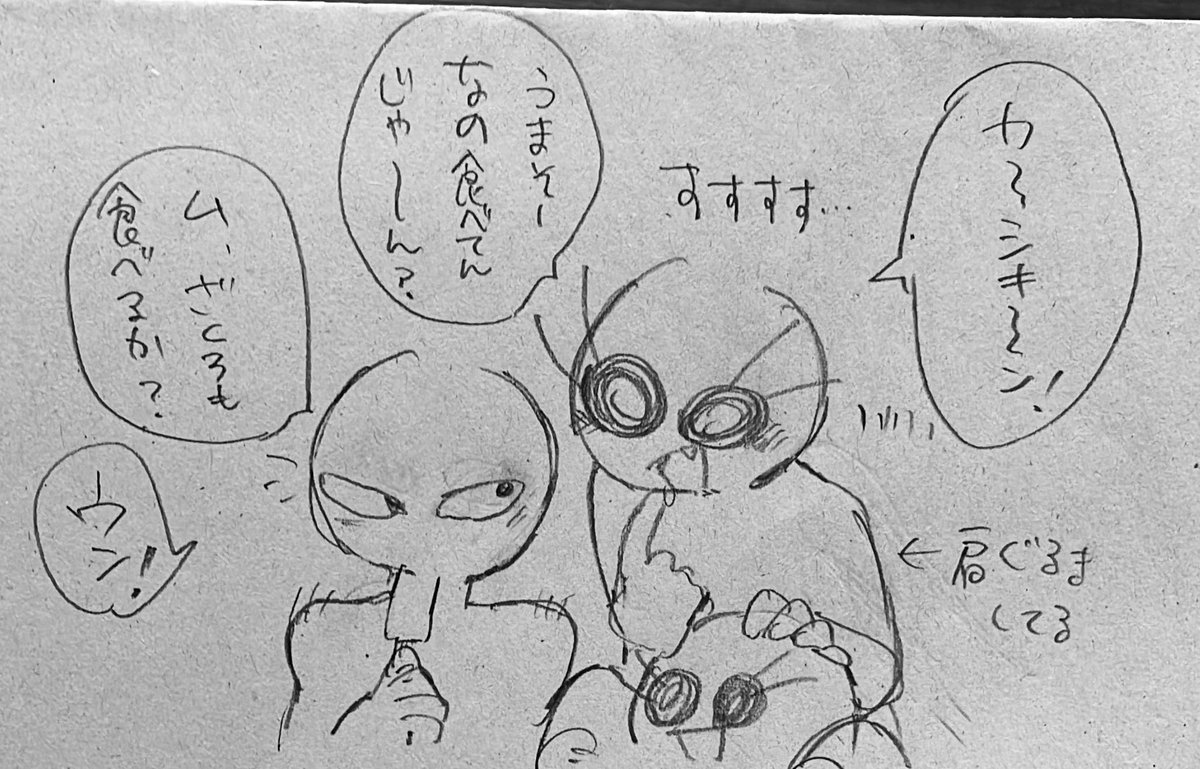 カ〜シキ〜ン!
すすすす…
うまそー
なの食べてん
じゃーん?
ム、ざくろも
食べるか?
ウン!
←肩ぐるま
してる